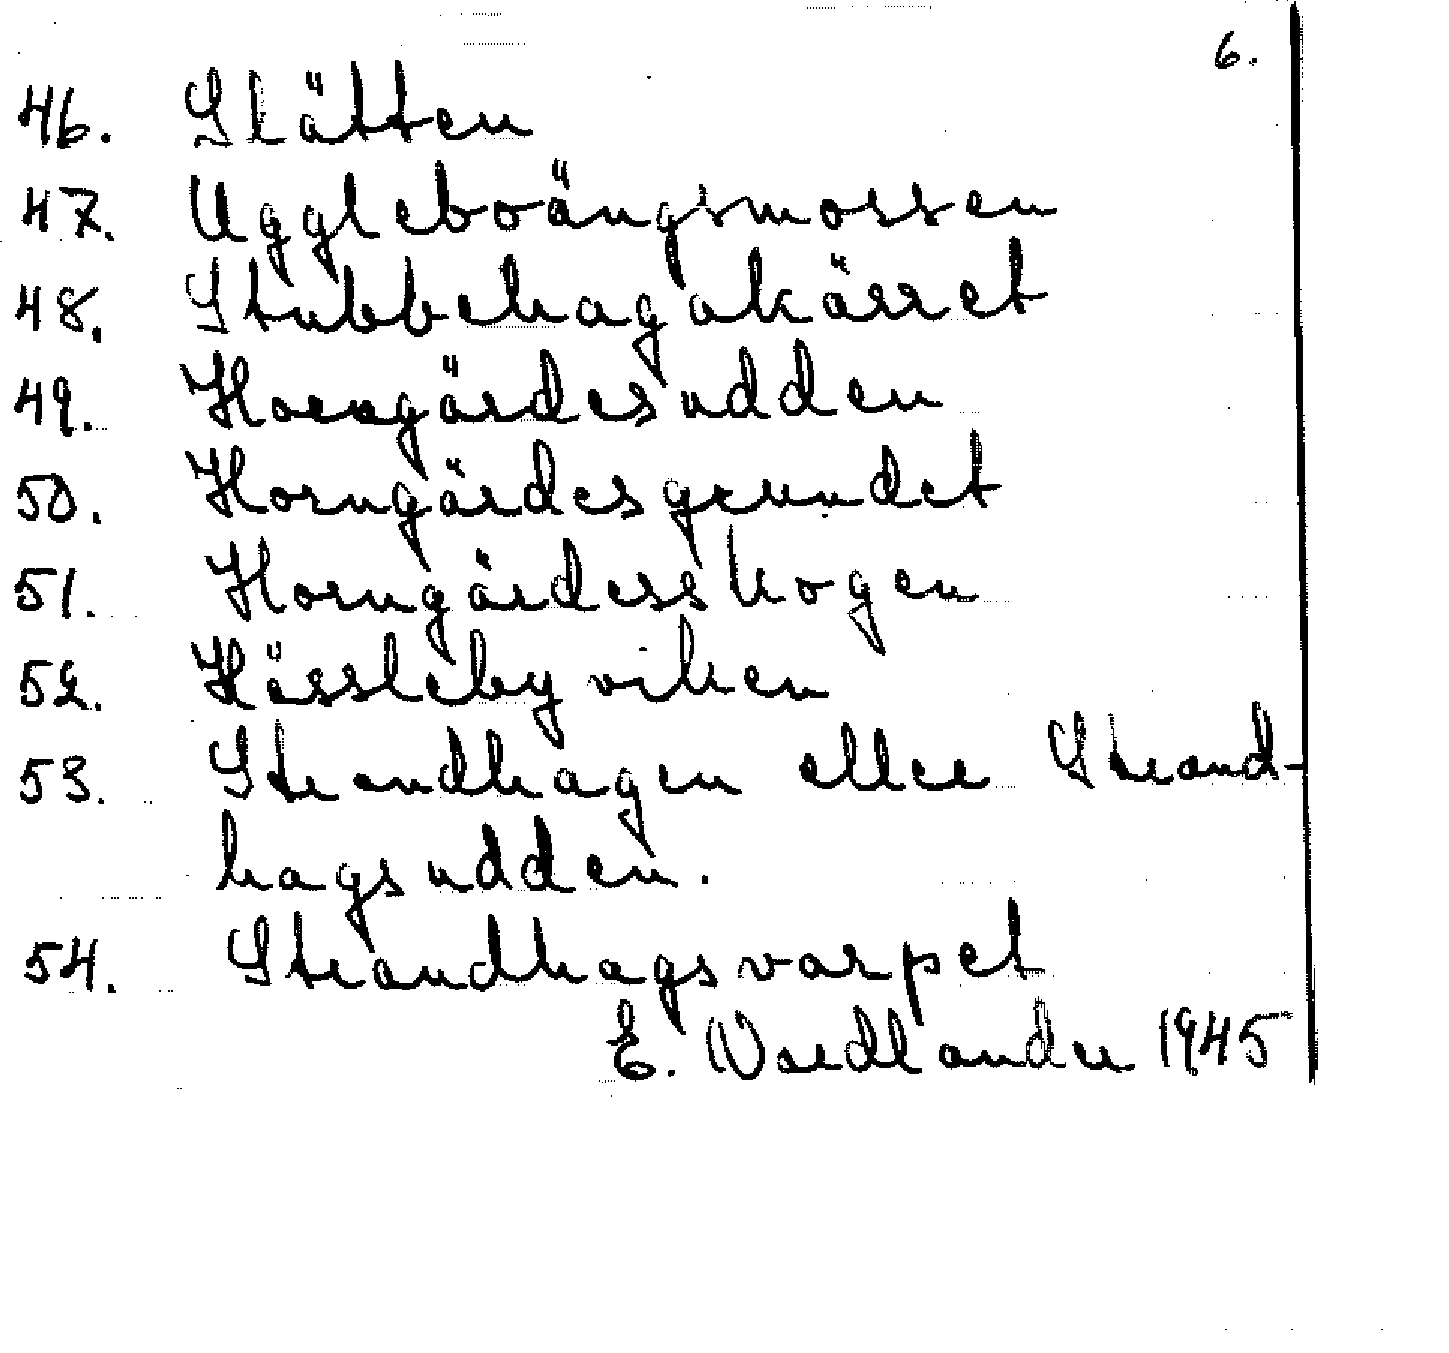 6.
46. Slätten
47. Uggleboängsmossen
48. Stubbehagakärret
49. Horngärdesudden
50. Horngärdesgrundet
51. Horngärdesskogen
52. Hässlebyviken
53. Strandhagen eller Strand-
hagsudden.
54. Strandhagsvarpet
E. Wardlander 1945